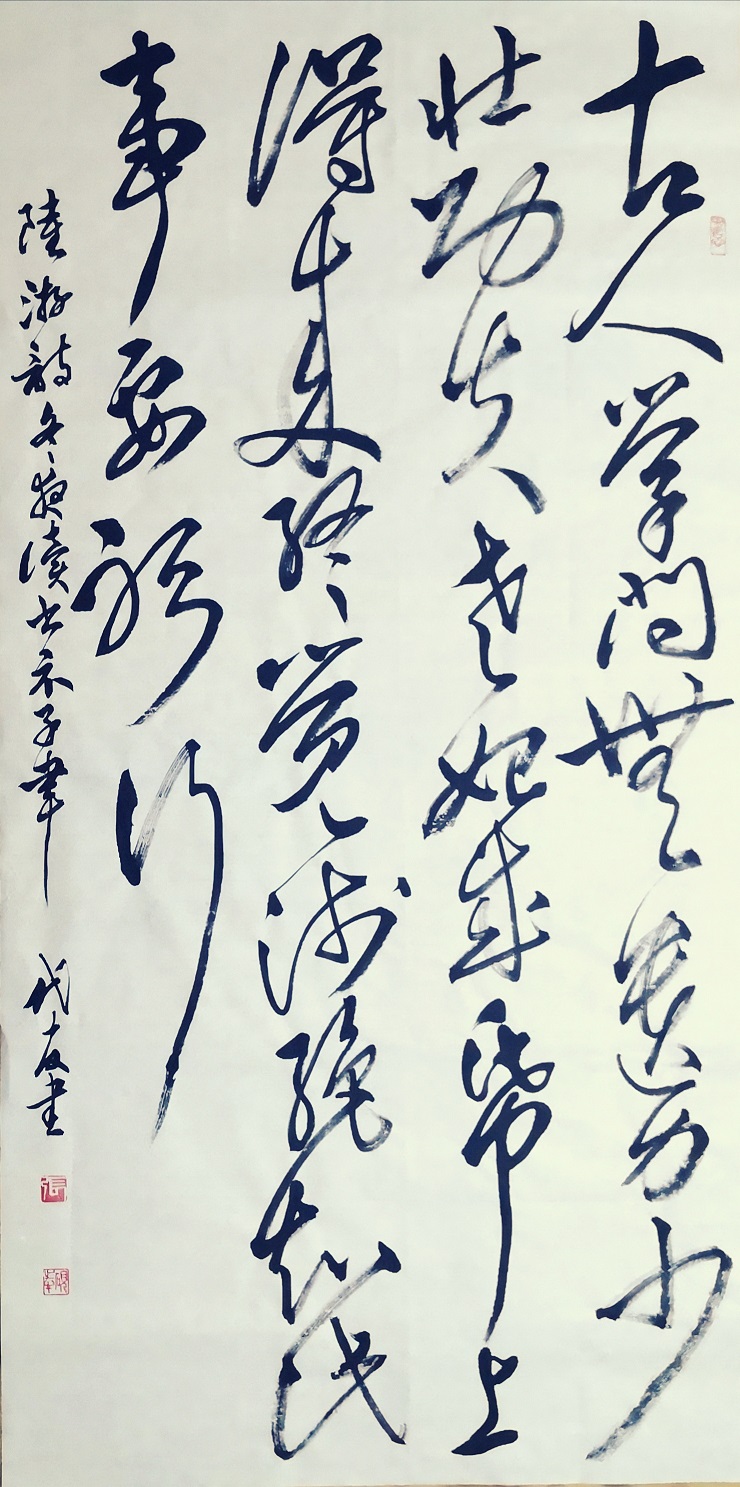 古人学问無遗力少
壮功夫老始成帋上
得来终觉浅绝知此
事要躬行
陸游詩冬夜读书示子聿 书